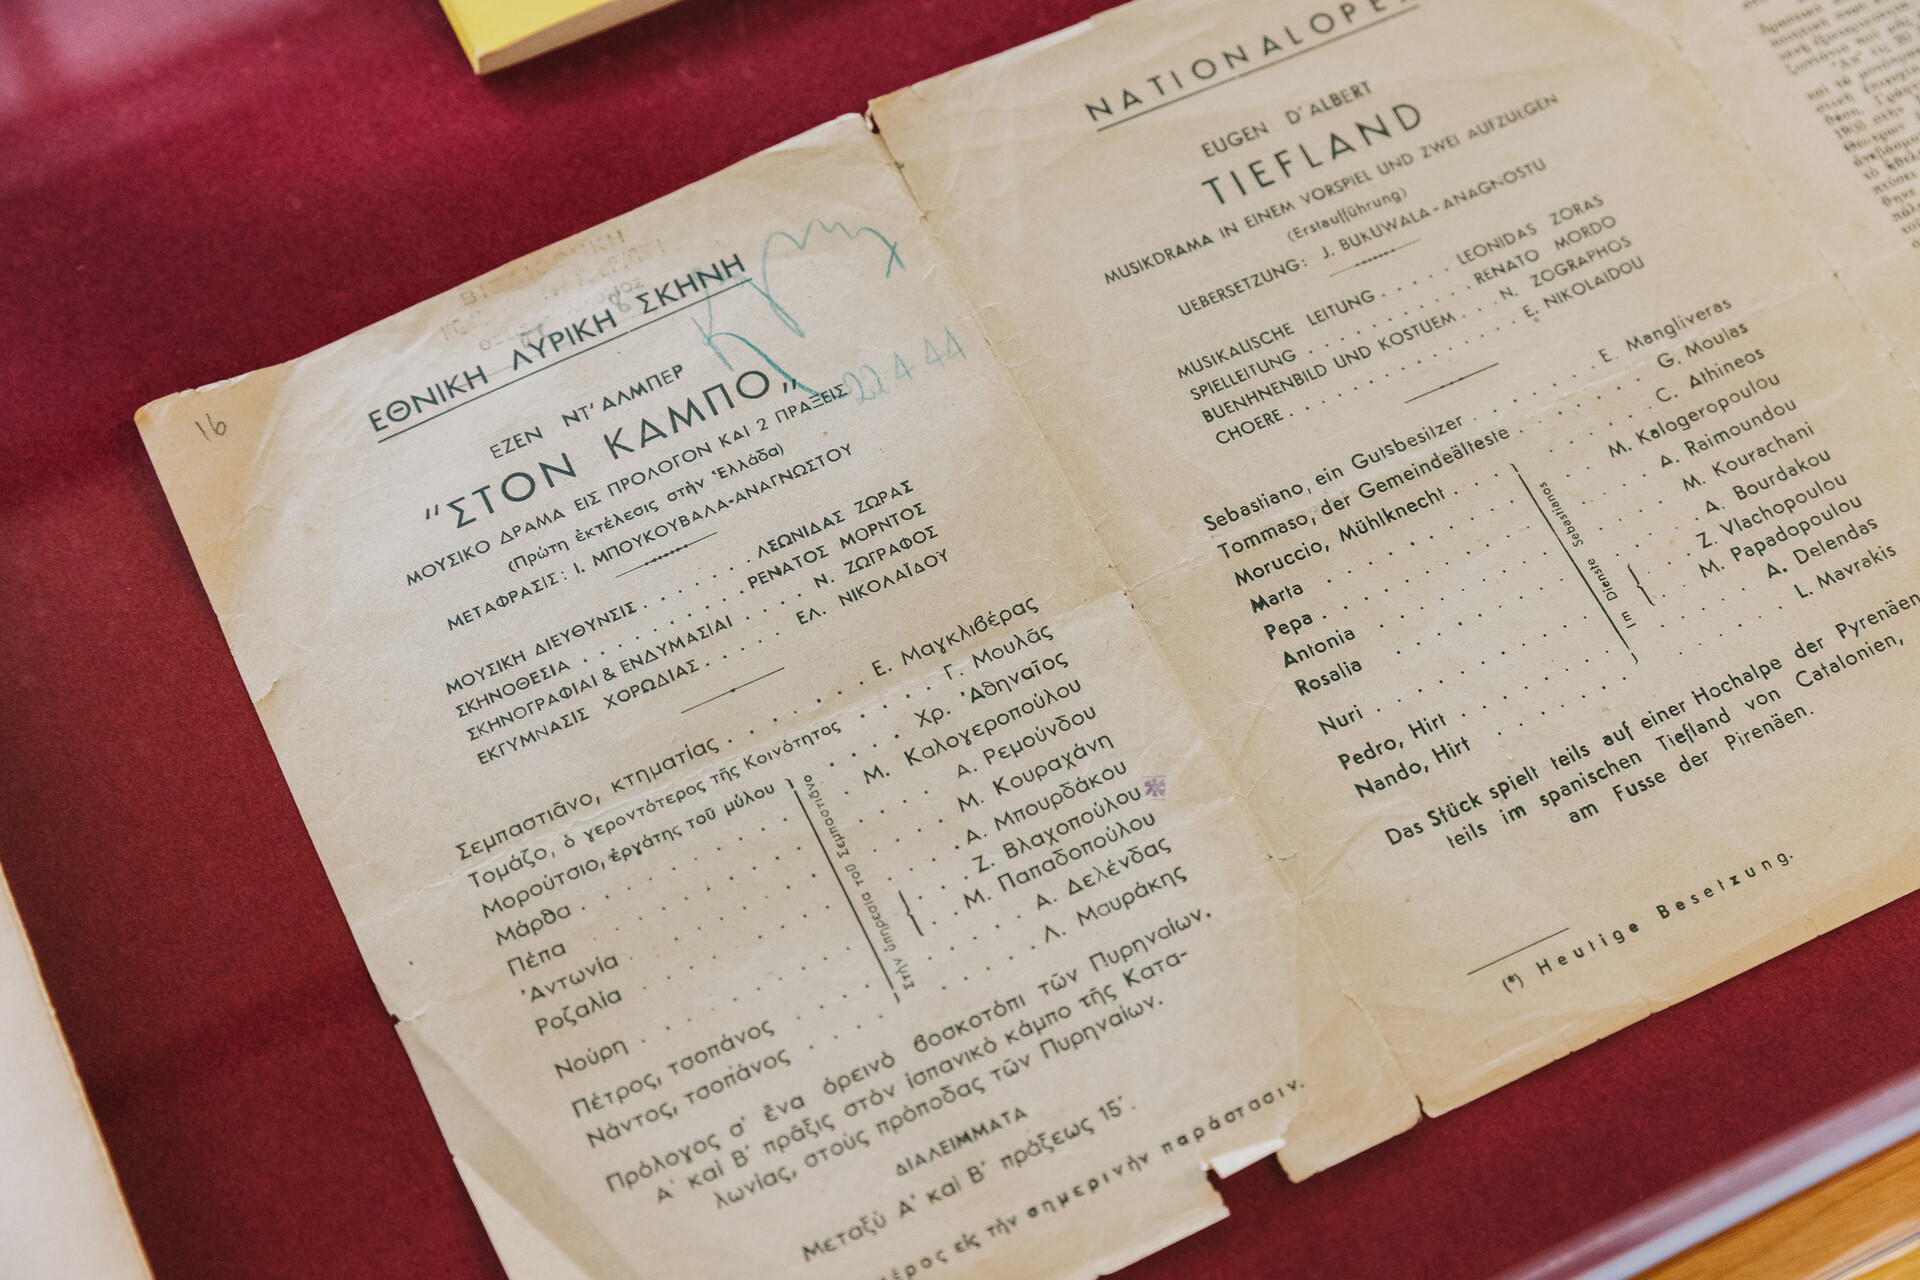 16
ΕΘΝΙΚΗ ΛΥΡΙΚΗ ΣΚΗΝΗ
22 4 44
ΕΖΕΝ ΝΤ' ΑΛΜΠΕΡ
“ΣΤΟΝ ΚΑΜΠΟ„
ΜΟΥΣΙΚΟ ΔΡΑΜΑ ΕΙΣ ΠΡΟΛΟΓΟΝ ΚΑΙ 2 ΠΡΑΞΕΙΣ
(Πρώτη ἐκτέλεσις στὴν Ἑλλάδα)
ΜΕΤΑΦΡΑΣΙΣ: Ι. ΜΠΟΥΚΟΥΒΑΛΑ-ΑΝΑΓΝΩΣΤΟΥ
ΜΟΥΣΙΚΗ ΔΙΕΥΘΥΝΣΙΣ . . . . . . . ΛΕΩΝΙΔΑΣ ΖΩΡΑΣ
ΣΚΗΝΟΘΕΣΙΑ . . . . . . . . . ΡΕΝΑΤΟΣ ΜΟΡΝΤΟΣ
ΣΚΗΝΟΓΡΑΦΙΑΙ & ΕΝΔΥΜΑΣΙΑΙ . . . . Ν. ΖΩΓΡΑΦΟΣ
ΕΚΓΥΜΝΑΣΙΣ ΧΟΡΩΔΙΑΣ . . . . . ΕΛ. ΝΙΚΟΛΑΪΔΟΥ
Σεμπαστιᾶνο, κτηματίας . . . . . . Ε. Μαγκλιβέρας
Τομάζο, ὁ γεροντότερος τῆς Κοινότητος . . . . Γ. Μουλᾶς
Μορούτσιο, ἐργάτης τοῦ μύλου . . . . Χρ. Ἀθηναῖος
Μάρθα . . . . . . . Μ. Καλογεροπούλου
Πέπα . . . . . . . Α. Ρεμούνδου
Ἀντωνία . . . . . . . Μ. Κουραχάνη
Ροζαλία . . . . . . . Α. Μπουρδάκου
Στὴν ὑπηρεσία τοῦ Σεμπαστιᾶνο
Νούρη . . . . . . . Ζ. Βλαχοπούλου
Μ. Παπαδοπούλου
Πέτρος, τσοπάνος . . . . . . . Α. Δελένδας
Νάντος, τσοπάνος . . . . . . . Λ. Μαυράκης
Πρόλογος σ' ἕνα ὀρεινὸ βοσκοτόπι τῶν Πυρηναίων.
Α' καὶ Β' πρᾶξις στὸν ἱσπανικὸ κάμπο τῆς Κατα-
λωνίας, στοὺς πρόποδας τῶν Πυρηναίων.
ΔΙΑΛΕΙΜΜΑΤΑ
Μεταξὺ Α' καὶ Β' πράξεως 15'.
εἰς τὴν σημερινὴν παράστασιν.
EUGEN D'ALBERT
TIEFLAND
MUSIKDRAMA IN EINEM VORSPIEL UND ZWEI AUFZUEGEN
(Erstaufführung)
UEBERSETZUNG: J. BUKUWALA-ANAGNOSTU
MUSIKALISCHE LEITUNG . . . . . LEONIDAS ZORAS
SPIELLEITUNG . . . . . . . . . RENATO MORDO
BUEHNENBILD UND KOSTUEM . . . N. ZOGRAPHOS
CHOERE . . . . . . . . . . . E. NIKOLAIDOU
Sebastiano, ein Gutsbesitzer . . . . . . E. Mangliveras
Tommaso, der Gemeindeälteste . . . . . . G. Moulas
Moruccio, Mühlknecht . . . . . . C. Athineos
Marta . . . . . . . M. Kalogeropoulou
Pepa . . . . . . . A. Raimoundou
Antonia . . . . . . . M. Kourachani
Rosalia . . . . . . . A. Bourdakou
Im Dienste Sebastianos
Nuri . . . . . . . Z. Vlachopoulou
M. Papadopoulou
Pedro, Hirt . . . . . . . A. Delendas
Nando, Hirt . . . . . . . L. Mavrakis
Das Stück spielt teils auf einer Hochalpe der Pyrenäen
teils im spanischen Tiefland von Catalonien,
am Fusse der Pirenäen.
(*) Heutige Besetzung.